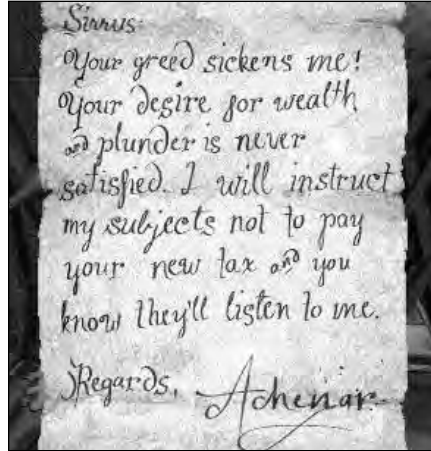 Sirrus:
Your greed sickens me!
Your desire for wealth
and plunder is never
satisfied. I will instruct
my subjects not to pay
your new tax and you
know they'll listen to me.
Regards, Achenar.